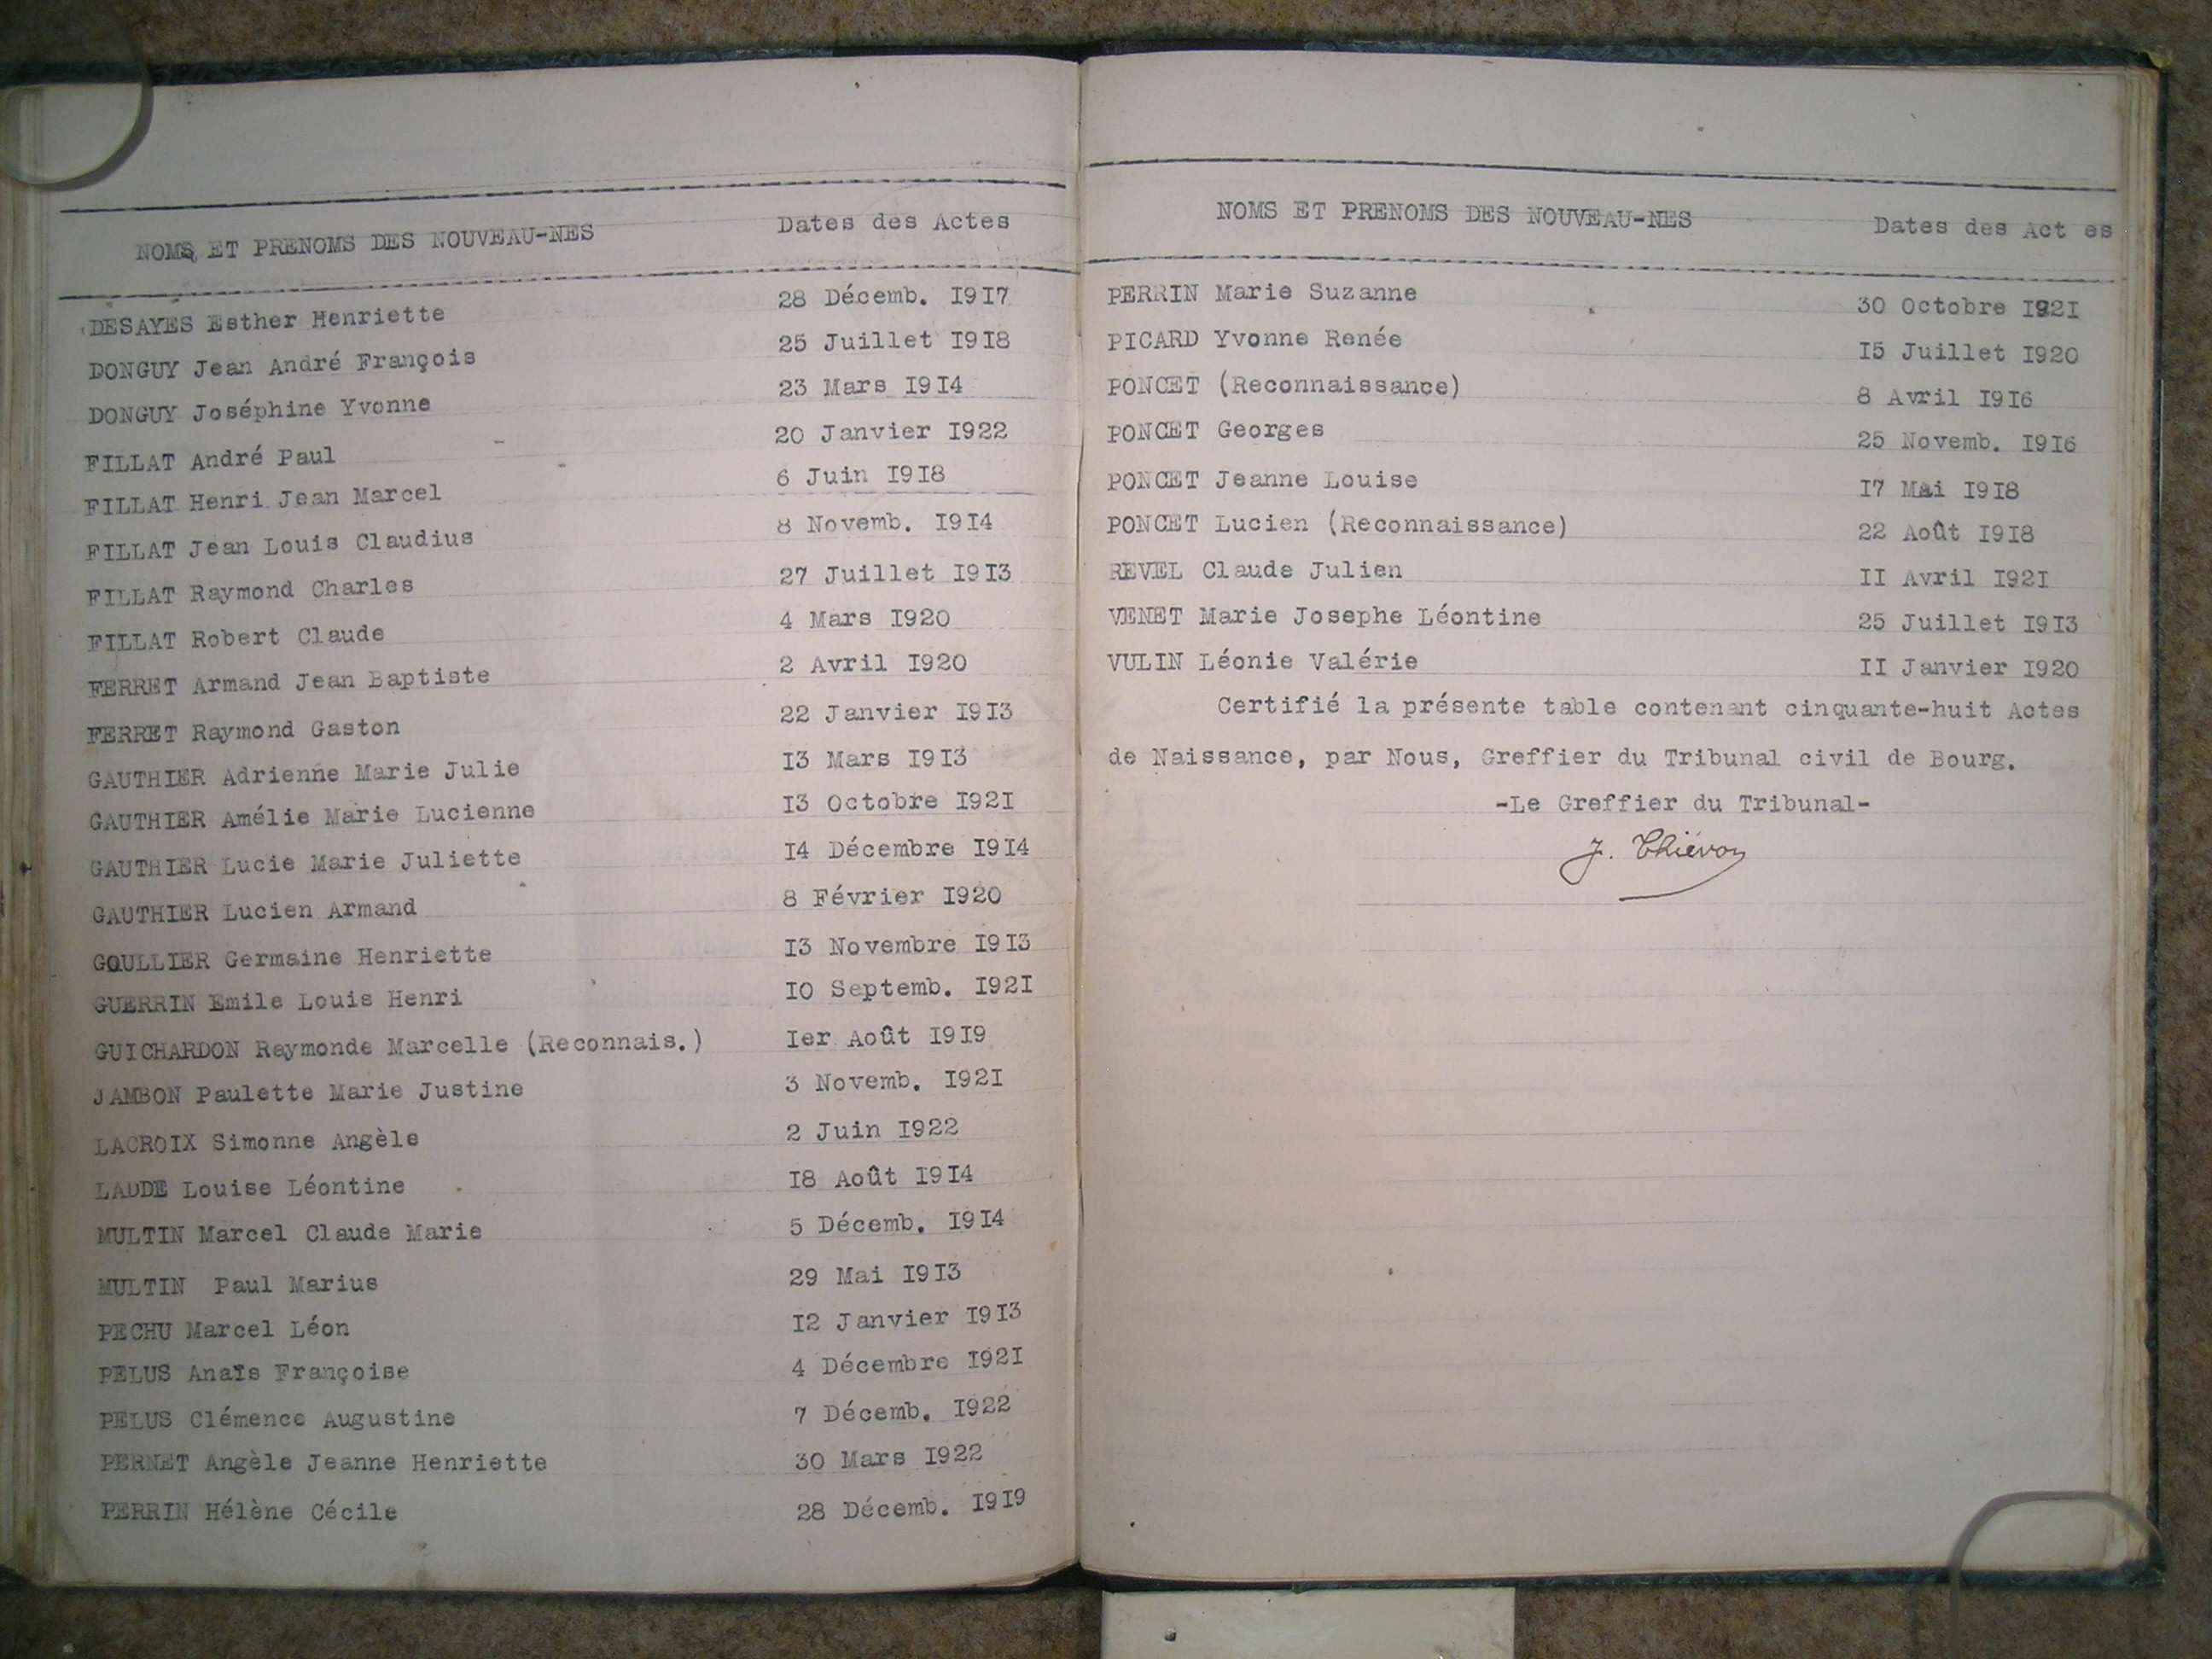 NOMS ET PRENOMS DES NOUVEAU-NES Dates des Actes
DESAYES Esther Henriette 28 Décemb. I9I7
DONGUY Jean André François 25 Juillet I9I8
DONGUY Joséphine Yvonne 23 Mars I9I4
FILLAT André Paul 20 Janvier I922
FILLAT Henri Jean Marcel 6 Juin I9I8
FILLAT Jean Louis Claudius 8 Novemb. I9I4
FILLAT Raymond Charles 27 Juillet I9I3
FILLAT Robert Claude 4 Mars I920
FERRET Armand Jean Baptiste 2 Avril I920
FERRET Raymond Gaston 22 Janvier I9I3
GAUTHIER Adrienne Marie Julie I3 Mars I9I3
GAUTHIER Amélie Marie Lucienne I3 Octobre I92I
GAUTHIER Lucie Marie Juliette I4 Décembre I9I4
GAUTHIER Lucien Armand 8 Février I920
GOULLIER Germaine Henriette I3 Novembre I9I3
GUERRIN Emile Louis Henri IO Septemb. I92I
GUICHARDON Raymonde Marcelle (Reconnais.) Ier Août I9I9
JAMBON Paulette Marie Justine 3 Novemb. I92I
LACROIX Simonne Angèle 2 Juin I922
LADDE Louise Léontine I8 Août I9I4
MULTIN Marcel Claude Marie 5 Décemb. I9I4
MULTIN Paul Marius 29 Mai I9I3
PECHU Marcel Léon I2 Janvier I9I3
PELUS Anaïs Françoise 4 Décembre I92I
PELUS Clémence Augustine 7 Décemb. I922
PERNET Angèle Jeanne Henriette 30 Mars I922
PERRIN Hélène Cécile 28 Décemb. I9I9
NOMS ET PRENOMS DES NOUVEAU-NES Dates des Act es
PERRIN Marie Suzanne 30 Octobre I92I
PICARD Yvonne Renée I5 Juillet I920
PONCET (Reconnaissance) 8 Avril I9I6
PONCET Georges 25 Novemb. I9I6
PONCET Jeanne Louise I7 Mai I9I8
PONCET Lucien (Reconnaissance) 22 Août I9I8
REVEL Claude Julien II Avril I92I
VENET Marie Josephe Léontine 25 Juillet I9I3
VULIN Léonie Valérie II Janvier I920
Certifié la présente table contenant cinquante-huit Actes
de Naissance, par Nous, Greffier du Tribunal civil de Bourg.
-Le Greffier du Tribunal-
J. Thiévon